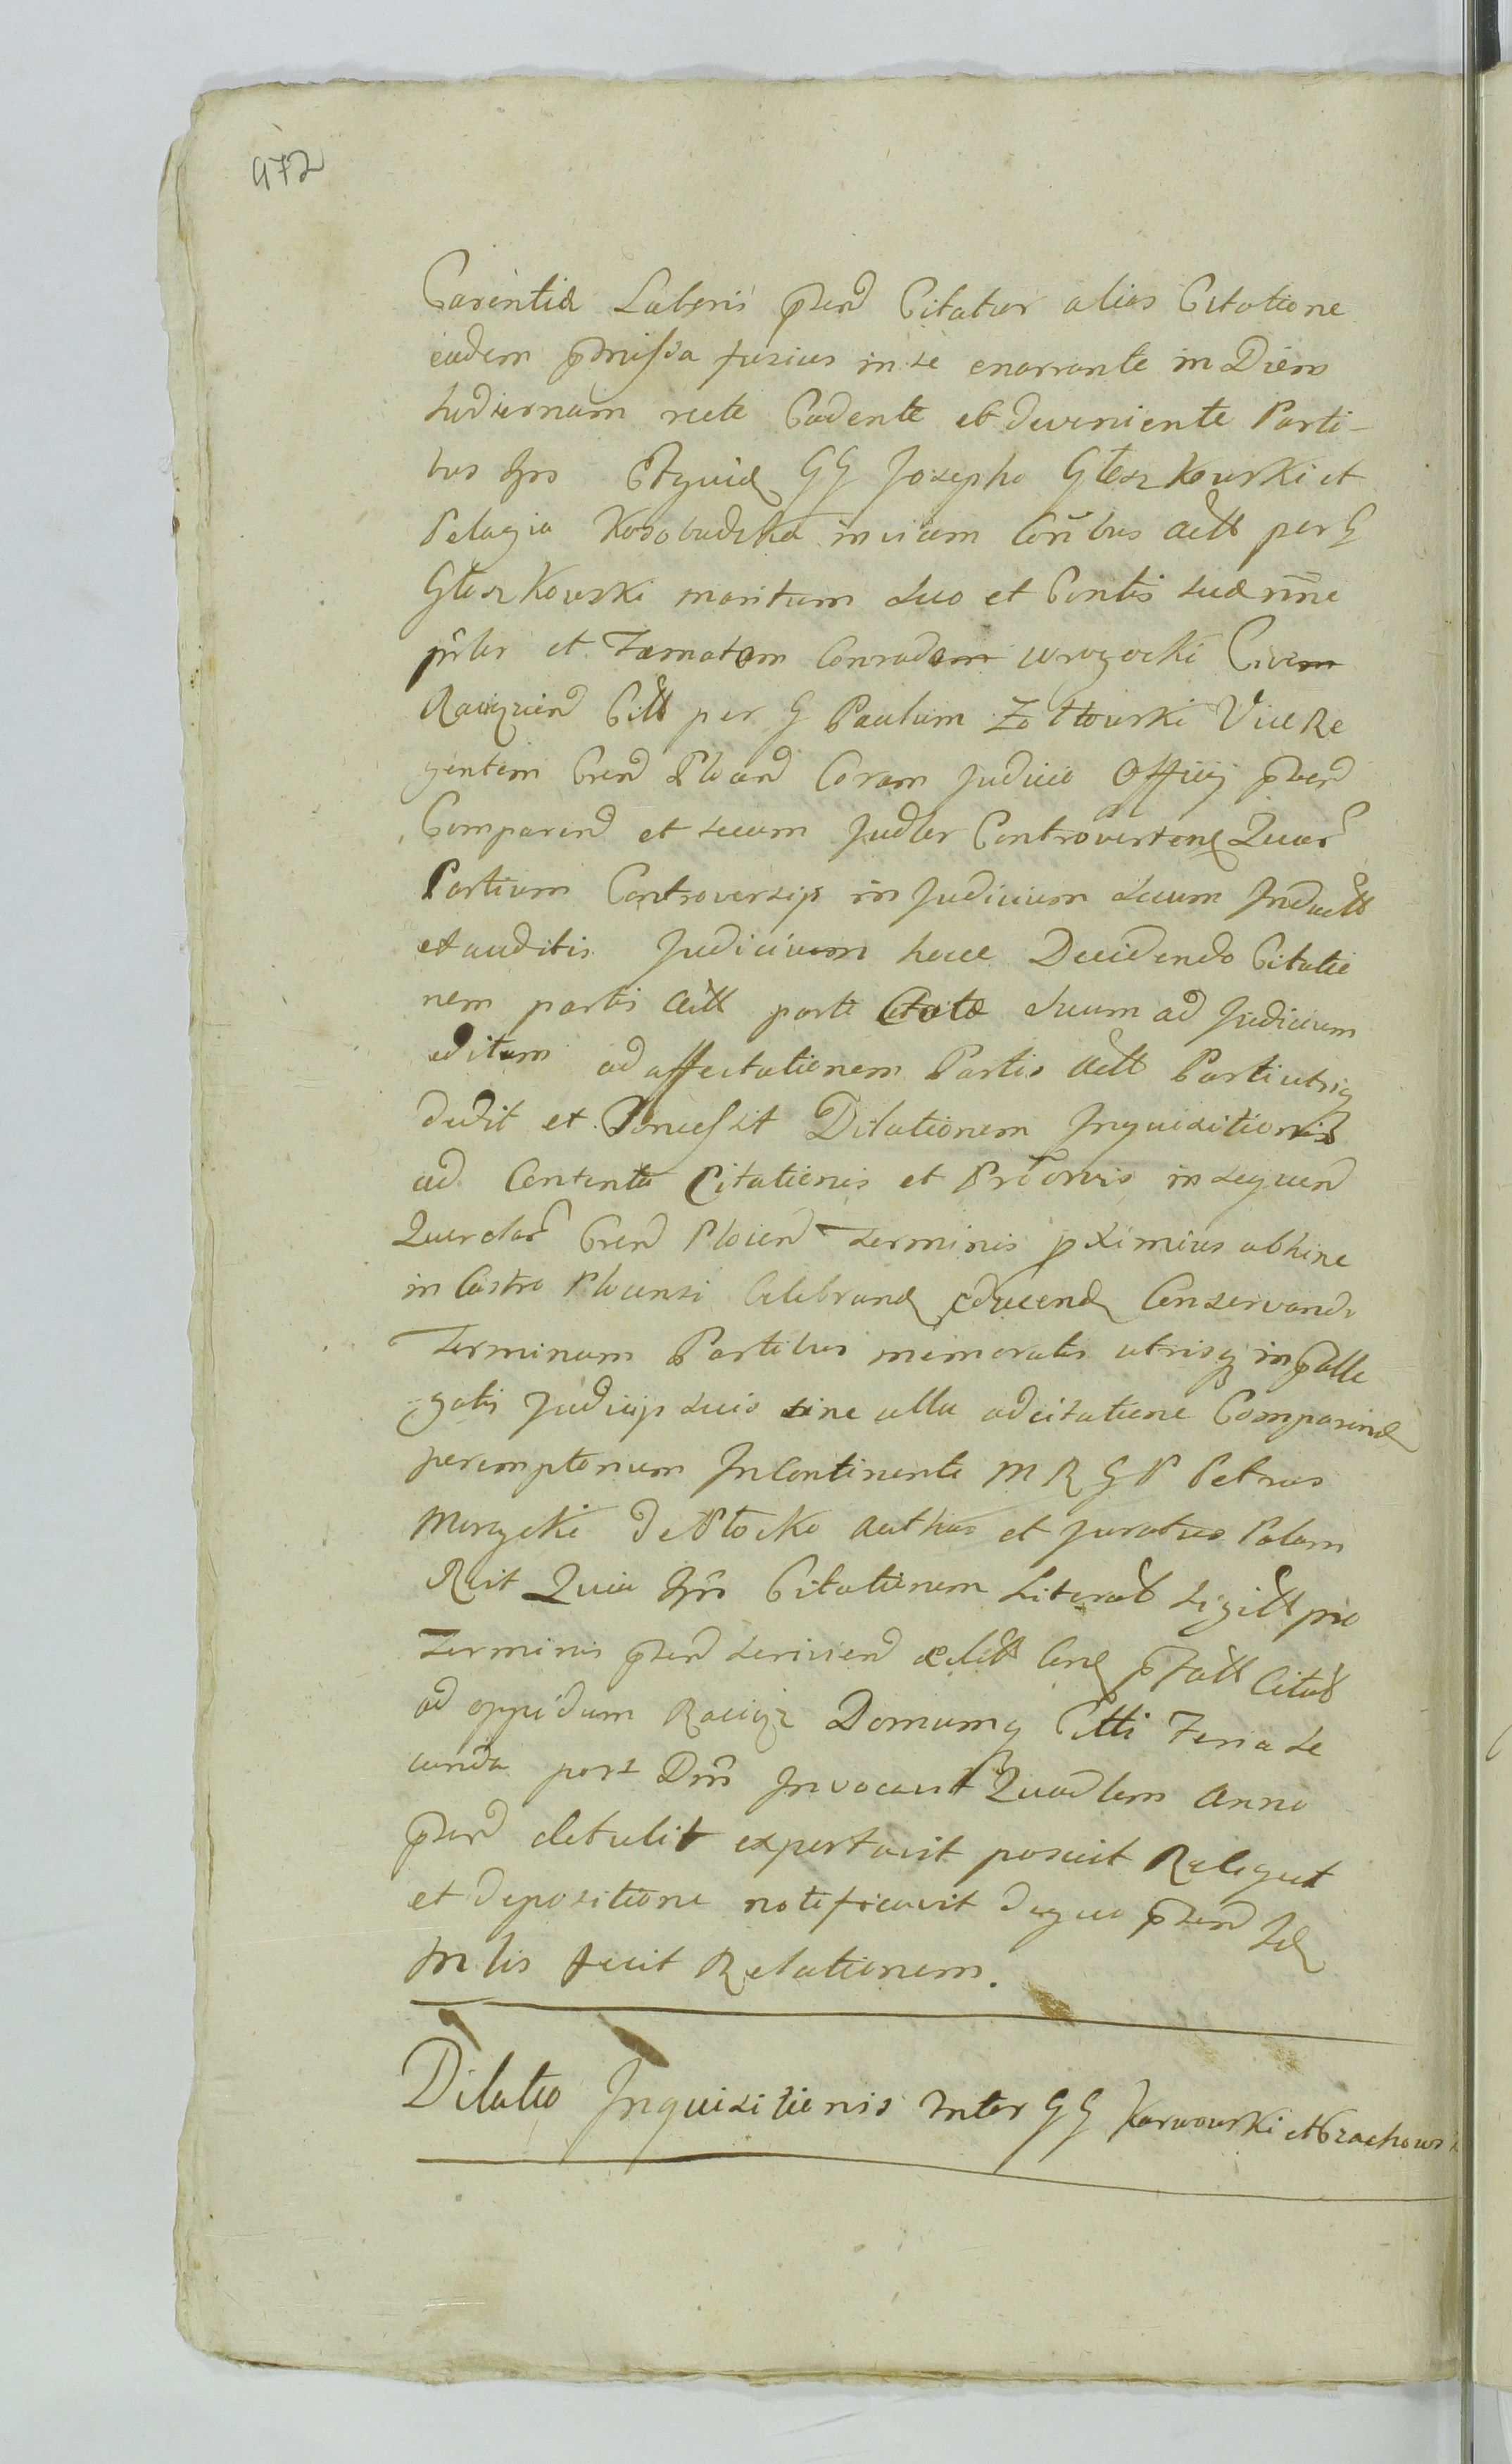 972
Carentiæ Laboris pñtend Citatur alias Citatione
eadem præmissa fusius in se enarrante in Diem
hodiernam recte Cadente et deveniente Parti-
bus Jpis GG Josepho Głoszkowski et
Pelagia Kosobudzka invicem Conibus Actt per G
Głoszkowski maritum suo et Contis suæ nñe
pñter et Famatam Conradum Civem
Raciązien Citt per G Paulum Zołtowski Vice Re
gentem Cren Plocen Coram Judicio Officij pñten
Comparen et secum Judler Controverten Quar
Partium Controversijs in Judicium suum Induct
et auditis Judicium hocce Decidendo Citatio
nem partis Actt parte Citatæ suum ad Judicium
editam ad affectationem Partis Actt Parti utriq
dedit et Concessit Dilationem Inquisitionis
ad Contenta Citationis et insequen
Querelar Cren Plocen terminis pximius abhinc
in Castro Plocensi Celebrand educend Conservando
Terminum Partibus memoratis utrisq in pralle
gatis Judicijs suis sine ulla adcitatione Comparend
peremptorium Incontinente M R G P Petrus
de Płocko Authus et Juratus Palam
Recit Quia Jpis Citationem Literalt Sigillt pro
Terminis pñten servien Citat
ad oppidum Raciąz Domumq Citti Feria se
cunda post Dnis Invocavit Quadlem Anno
pñten detulit exportavit posuit Reliquit
et depositione notificavit de quo pñten
fecit Relationem.
Dilatio Inquisitionis Inter GG Karwowski et